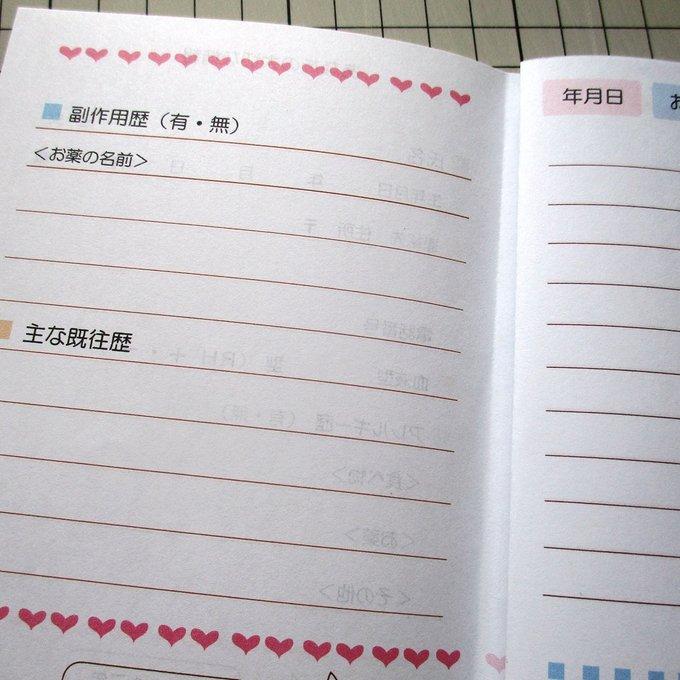 副作用歴（有・無）
<お薬の名前>
主な既往歴
年月日
お